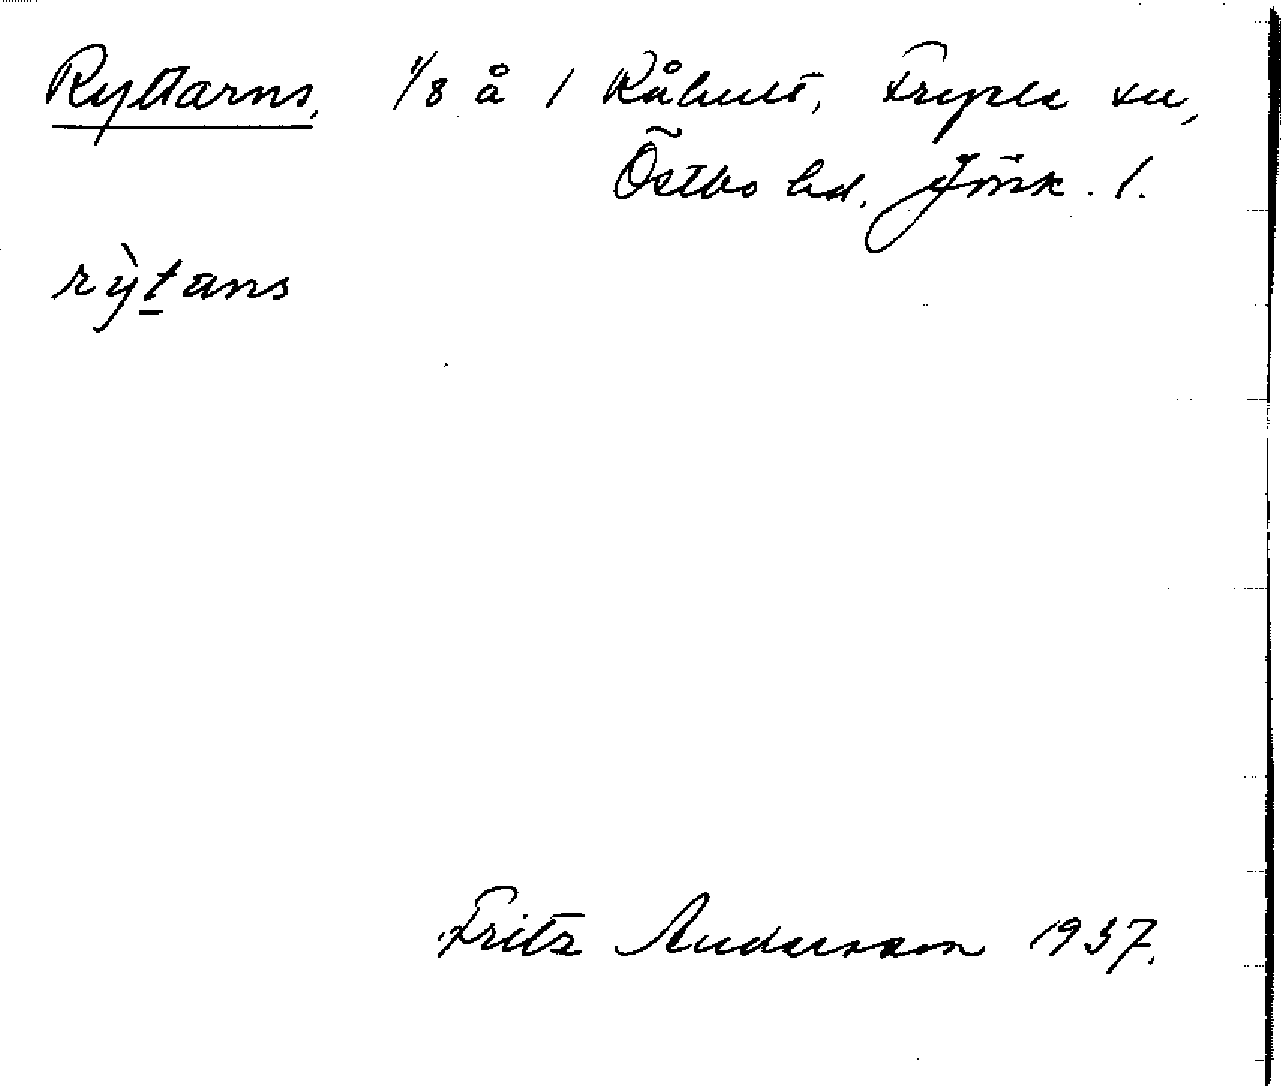 Ryttarns, 1/8 å 1 Råhult, Fryele sn,
Östbo hd. Jönk. l.
rỳtans
Fritz Andersson 1937.